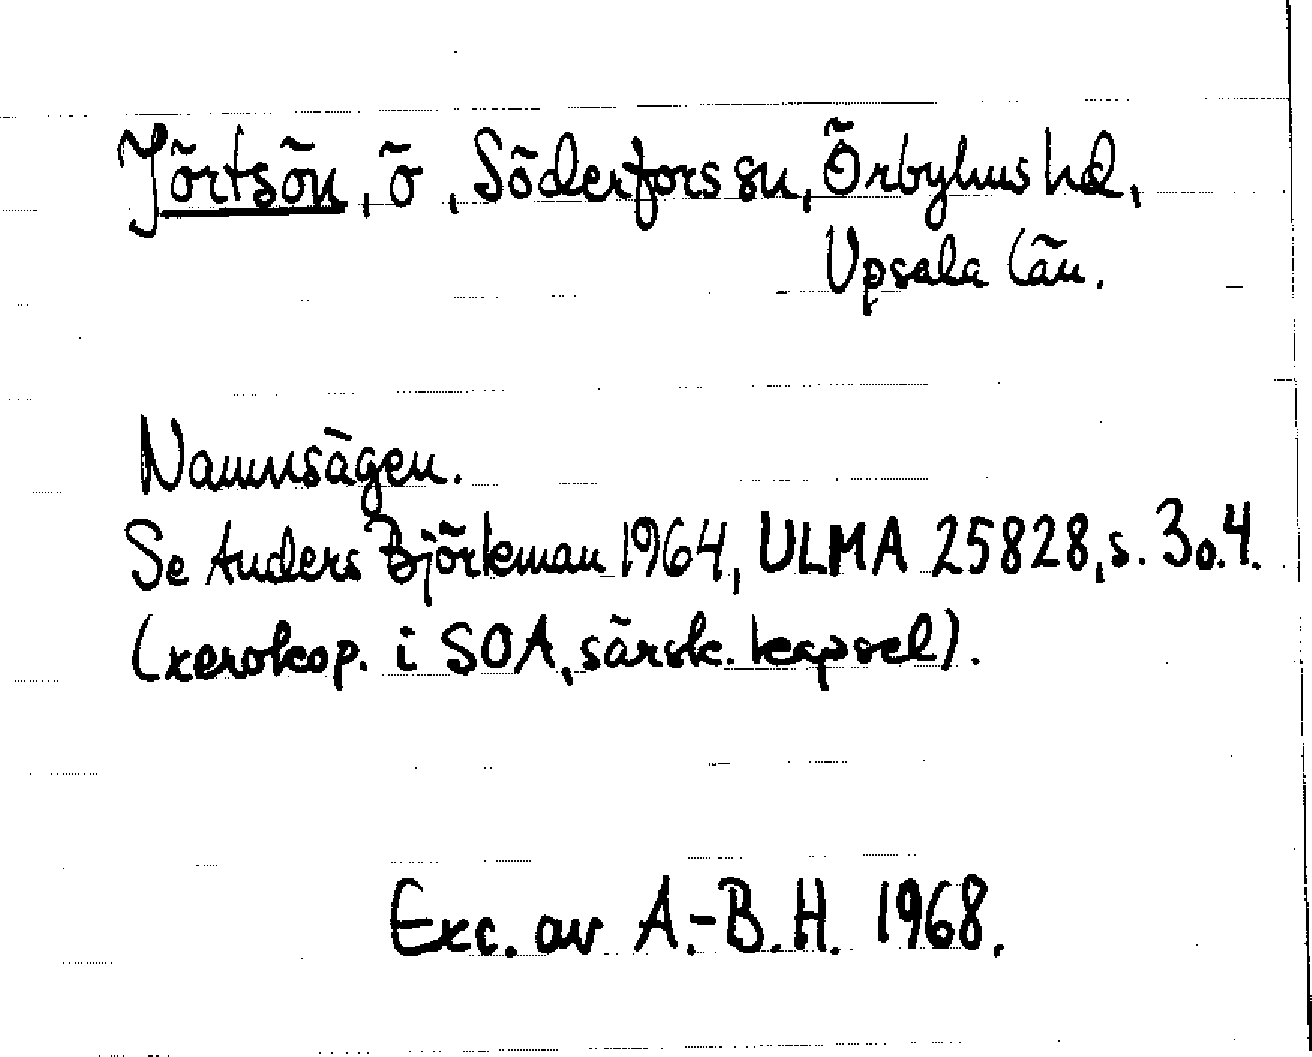 Jörtsön, ö, Söderfors sn, Örbyhus hd,
Upsala län.
Namnsägen.
Se Anders Björkman 1964, ULMA 25828, s. 3 o. 4.
(xerokop. i SOA, särsk. kapsel).
Exc. av A.-B. H. 1968.